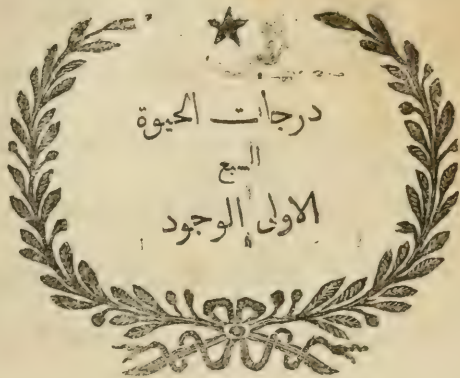 درجات الحيوة
السبع
الاولى الوجود